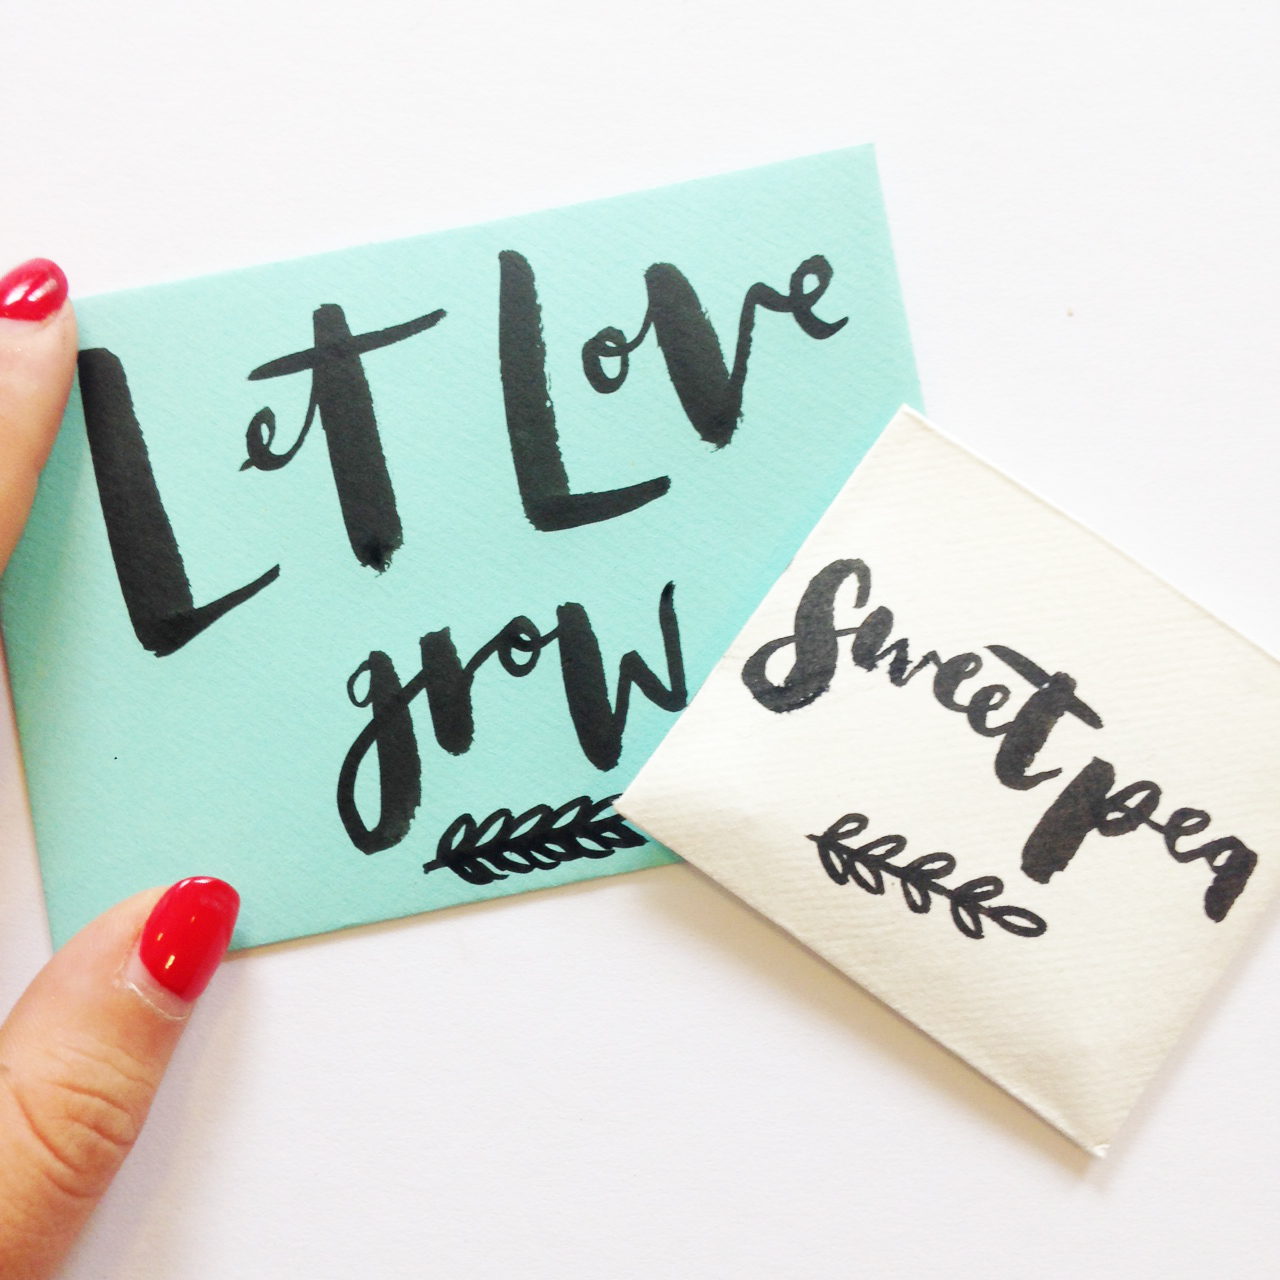 Let Love
grow
Sweet pea